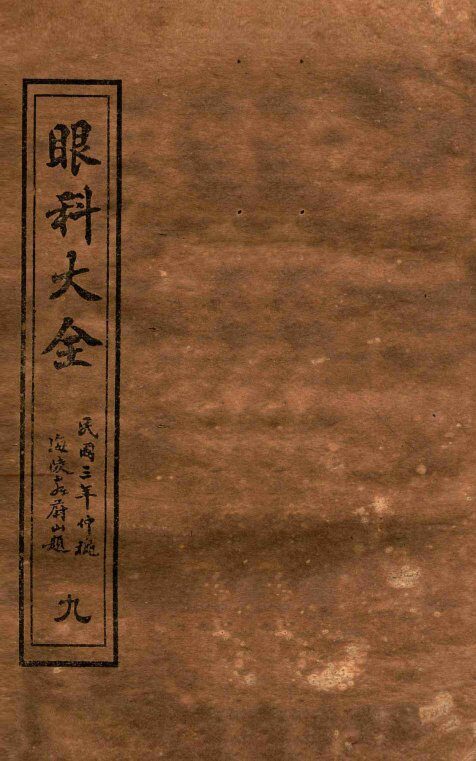 眼科大全
民國三年仲穐
海陵袁蔚山題
九